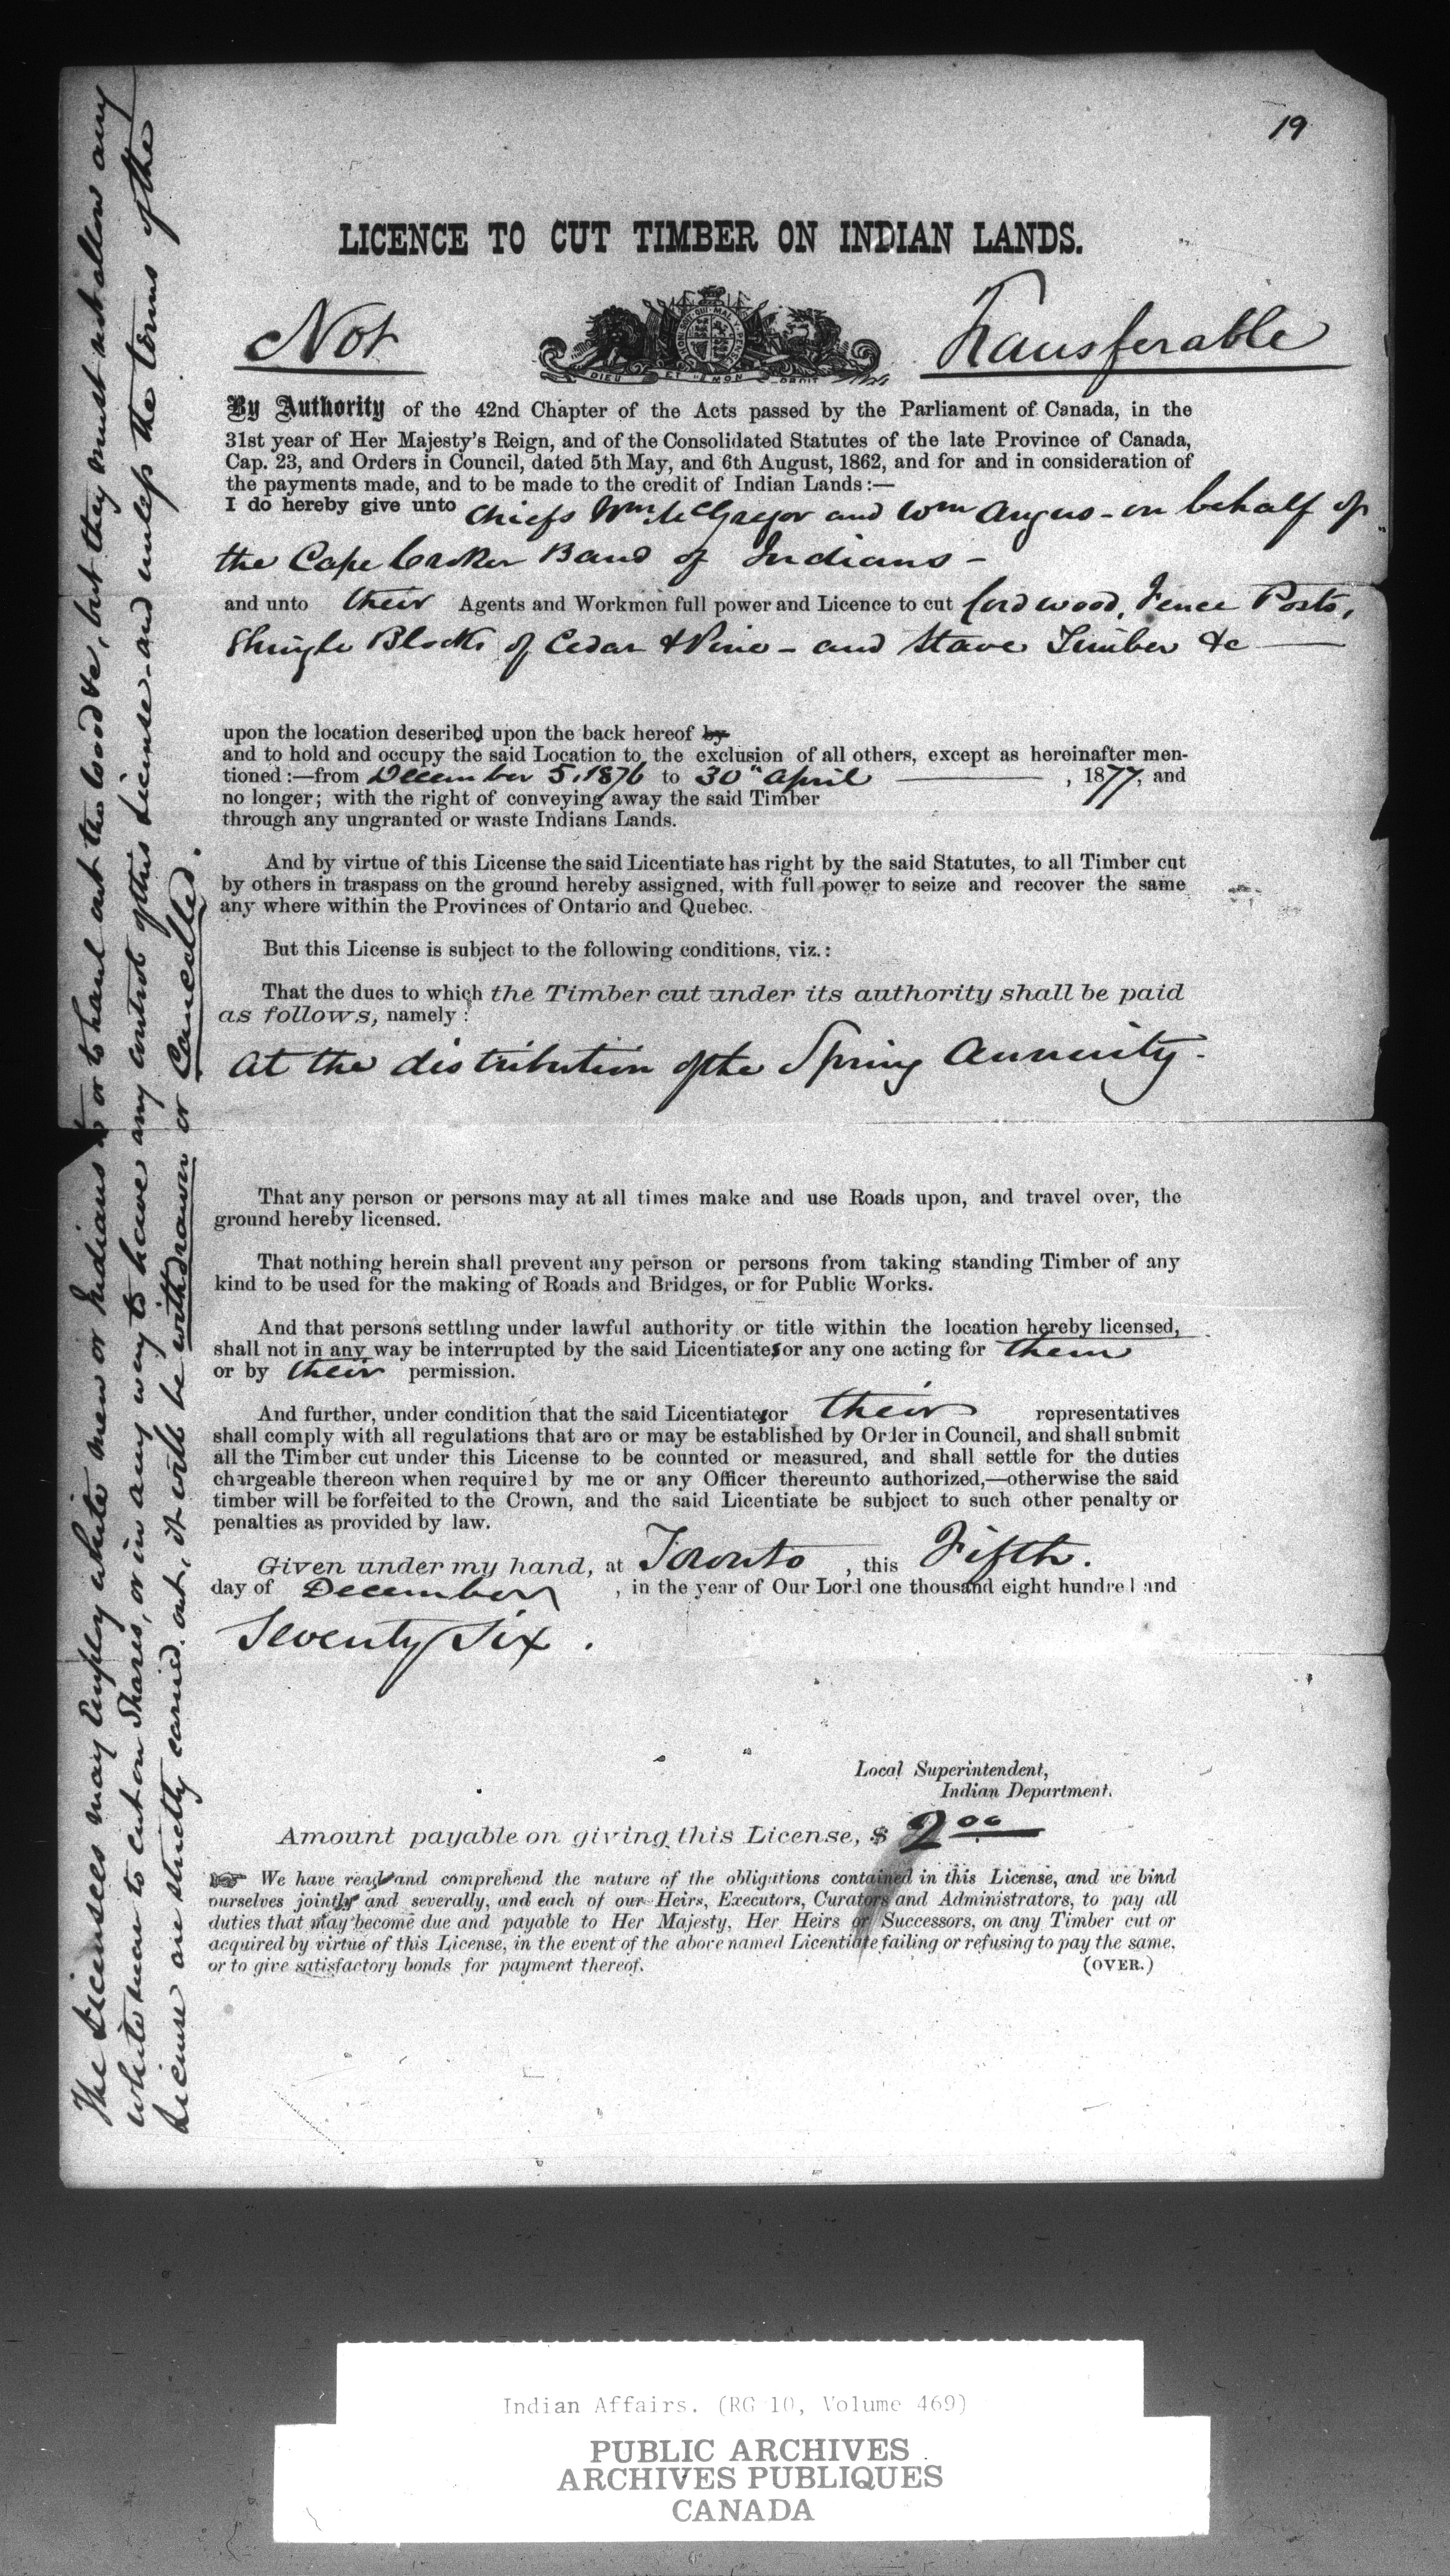 19
LICENCE TO CUT TIMBER ON INDIAN LANDS.
Not Transferable
HONI SOIT QUI MAL Y PENSE
DIEU ET MON DROIT
By Authority of the 42nd Chapter of the Acts passed by the Parliament of Canada, in the
31st year of Her Majesty's Reign, and of the Consolidated Statutes of the late Province of Canada,
Cap. 23, and Orders in Council, dated 5th May, and 6th August, 1862, and for and in consideration of
the payments made, and to be made to the credit of Indian Lands:—
I do hereby give unto Chiefs Wm McGregor and Wm Angus - on behalf of
the Cape Croker Band of Indians -
and unto their Agents and Workmen full power and Licence to cut Cord wood, Fence Posts,
Shingle Blocks of Cedar & Pine - and Stave Timber &c
upon the location described upon the back hereof by
and to hold and occupy the said Location to the exclusion of all others, except as hereinafter men-
tioned:—from December 5, 1876 to 30th April , 1877, and
no longer; with the right of conveying away the said Timber
through any ungranted or waste Indians Lands.
And by virtue of this License the said Licentiate has right by the said Statutes, to all Timber cut
by others in traspass on the ground hereby assigned, with full power to seize and recover the same
any where within the Provinces of Ontario and Quebec.
But this License is subject to the following conditions, viz.:
That the dues to which the Timber cut under its authority shall be paid
as follows, namely:
At the distribution of the Spring Annuity.
That any person or persons may at all times make and use Roads upon, and travel over, the
ground hereby licensed.
That nothing herein shall prevent any person or persons from taking standing Timber of any
kind to be used for the making of Roads and Bridges, or for Public Works.
And that persons settling under lawful authority or title within the location hereby licensed,
shall not in any way be interrupted by the said Licentiates or any one acting for them
or by their permission.
And further, under condition that the said Licentiates or their representatives
shall comply with all regulations that are or may be established by Order in Council, and shall submit
all the Timber cut under this License to be counted or measured, and shall settle for the duties
chargeable thereon when required by me or any Officer thereunto authorized,—otherwise the said
timber will be forfeited to the Crown, and the said Licentiate be subject to such other penalty or
penalties as provided by law.
Given under my hand, at Toronto , this Fifth.
day of December , in the year of Our Lord one thousand eight hundred and
Seventy Six.
Local Superintendent,
Indian Department.
Amount payable on giving this License, $ 2 00
☞ We have read and comprehend the nature of the obligations contained in this License, and we bind
ourselves jointly and severally, and each of our Heirs, Executors, Curators and Administrators, to pay all
duties that may become due and payable to Her Majesty, Her Heirs or Successors, on any Timber cut or
acquired by virtue of this License, in the event of the above named Licentiate failing or refusing to pay the same,
or to give satisfactory bonds for payment thereof.
(OVER.)
The Licensees may Employ white men or Indians to or to haul out the wood &c, but they must not allow any
white men to cut on Shares, or in any way to have any control of this License - and unless the terms of the
License are strictly carried out, it will be withdrawn or Cancelled.
Indian Affairs. (RG 10, Volume 469)
PUBLIC ARCHIVES
ARCHIVES PUBLIQUES
CANADA